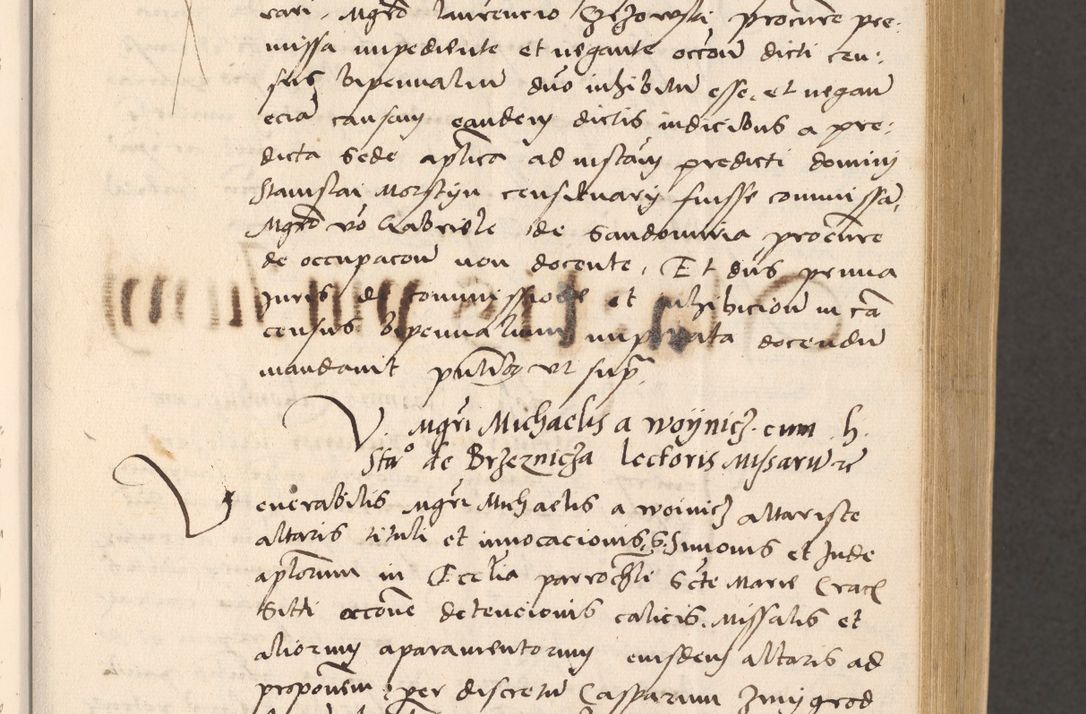 rari, Mgro Laurencio procure pre:
missa impediente et negante occōm dicti cen:
sus bipennalem duo inhibitum esse, et negan
eciā causam eandem dictis iudicibus a pre:
dicta Sede aplīca ad instām predicti domini
Stanislai Morstyn censituarij fuisse commissā,
Mgro vō Gabriele de Sandomiria procure
de occupacōm non docente, Et dūs
Juris de commissione et inhibiciōm in cā
census bipennalium docendū
mandavit ut supᵃ
V. Mgri Michaelis a Woÿnicz cum h.
Staº de Brzeznicza lectoris Missarū re
Venerabilis Mgri Michaelis a Woinicz altariste
altaris tituli et invocacionis S. Simonis et Jude
aplorum in Ecclīa parrochli Scte Marie Crac
Sitti occone detencionis calicis, Missalis et
aliorum aparamentorum eiusdem altaris ad
proponēm per discretū Casparum Zmygrod